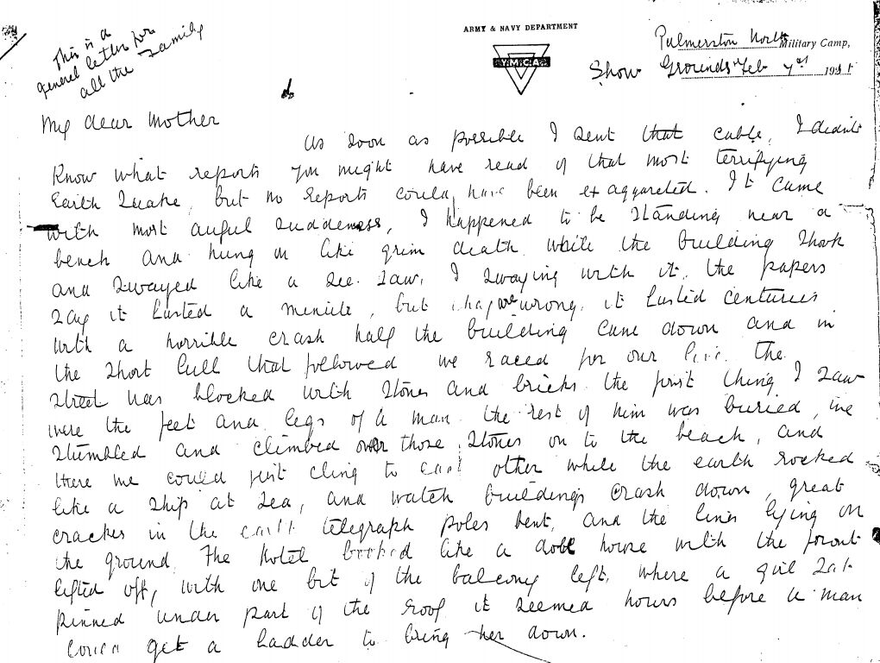 This is a
general letter for
all the Family
ARMY & NAVY DEPARTMENT
Y.M.C.A.
Palmerston North Military Camp,
Show Grounds Feb 7th 1931
My dear Mother
As soon as possible I sent that cable, I didnt
know what reports you might have read of that most terrifying
Earth Quake, but no reports could have been exaggareted. It came
with most awful suddeness, I happened to be standing near a
bench and hung on like grim death while the building shook
and swayed like a see-saw, I swaying with it, the papers
say it lasted a minute, but they are wrong, it lasted centuries
with a horrible crash half the building came down and in
the short lull that followed we raced for our lives. The
street was blocked with stones and bricks the first thing I saw
were the feet and legs of a man the rest of him was buried, we
stumbled and climbed over those stones on to the beach, and
there we could just cling to each other while the earth rocked
like a ship at sea, and watch buildings crash down, great
cracks in the earth telegraph poles bent, and the lines lying on
the ground. The Hotel looked like a doll house with the front
lifted off, with one bit of the balcony left, where a girl sat
pinned under part of the roof it seemed hours before a man
could get a ladder to bring her down.